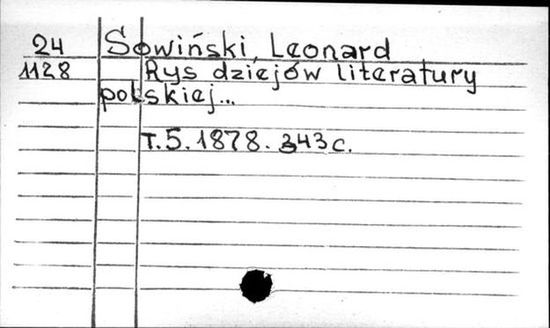 24 Sowiński, Leonard
1128 Rys dziejów literatury
polskiej...
т.5. 1878. 343 с.